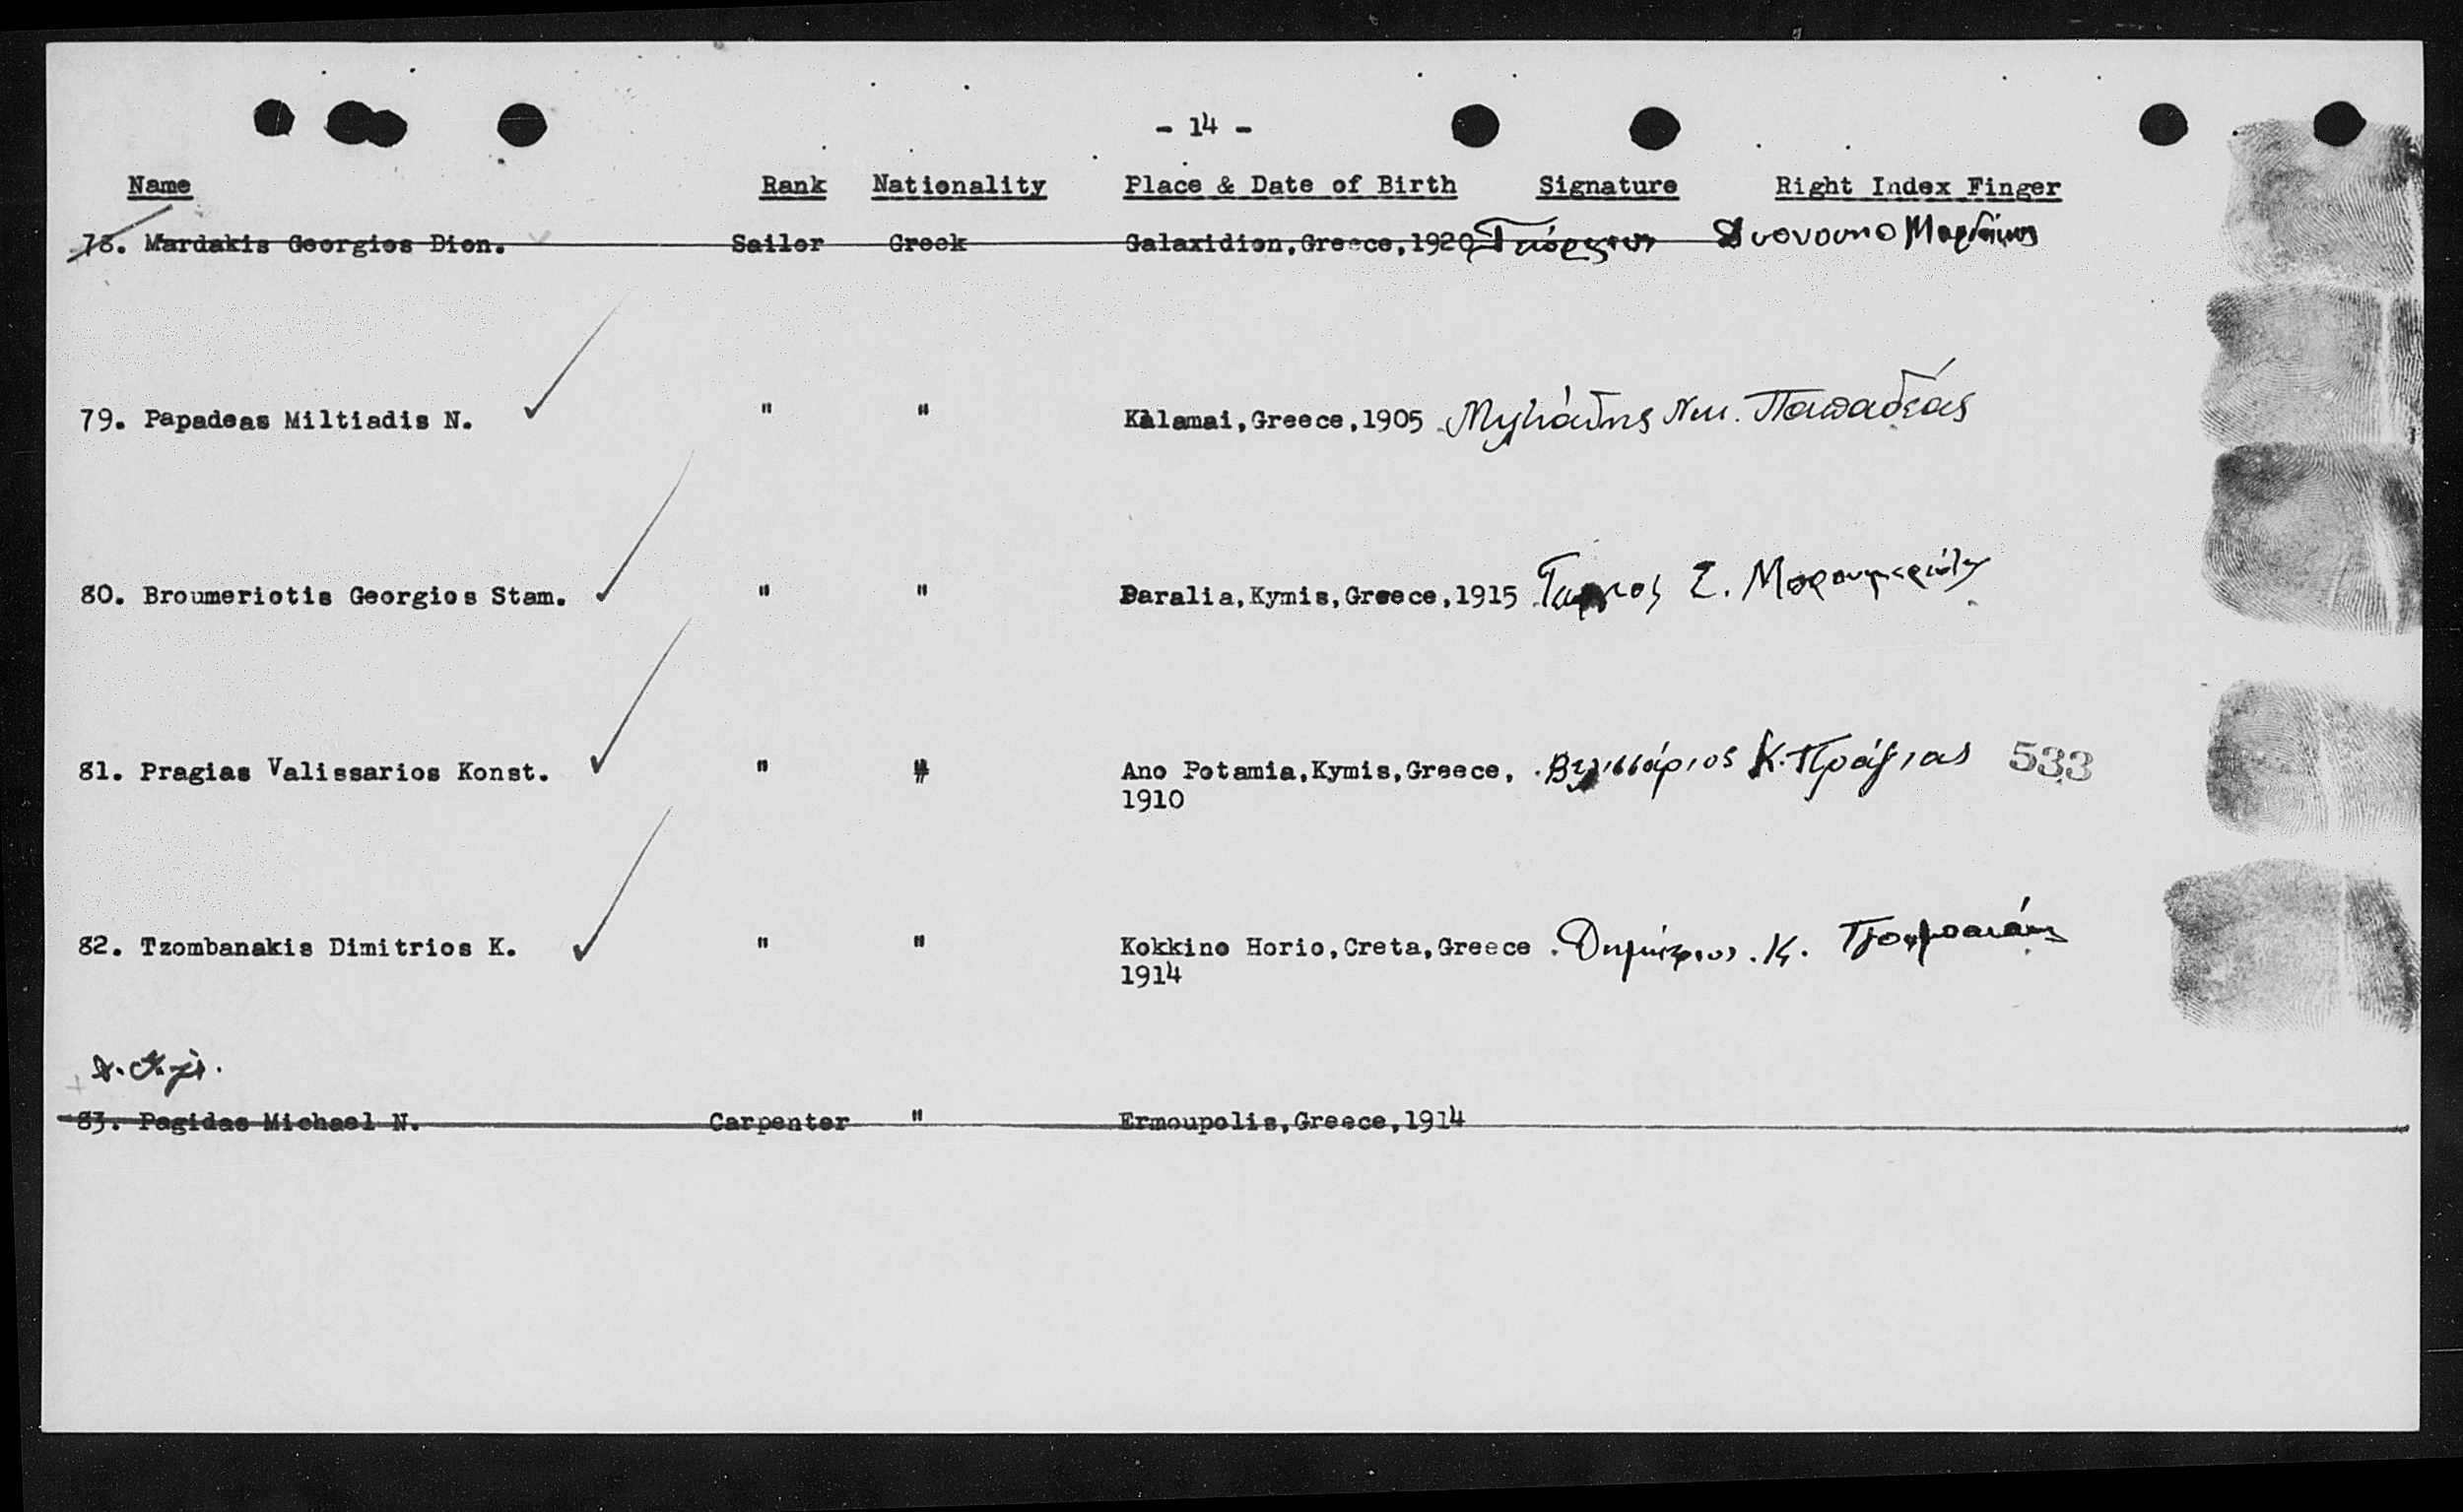 - 14 -
Name Rank Nationality Place & Date of Birth Signature Right Index Finger
78. Mardakis Georgios Dion. Sailor Greek Galaxidion,Greece,1920 Γεώργιος Διονυσιο Μαρδάκης
79. Papadeas Miltiadis N. " " Kalamai,Greece,1905 Μιλτιάδης Νικ. Παπαδέας
80. Broumeriotis Georgios Stam. " " Paralia,Kymis,Greece,1915 Σ. Μπρουμεριώτης
81. Pragias Valissarios Konst. " " Ano Potamia,Kymis,Greece, Βελισσάριος Κ. Πράγιας 533
1910
82. Tzombanakis Dimitrios K. " " Kokkino Horio,Creta,Greece Δημήτριος. Κ. Τζομπανάκης
1914
83. Pagidas Michael N. Carpenter " Ermoupolis,Greece,1914